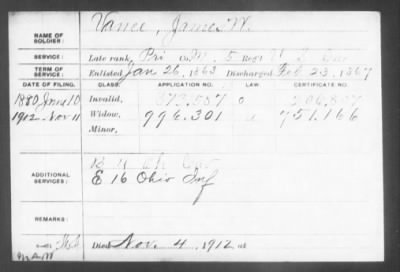 NAME OF SOLDIER: Vance, James W.
SERVICE: Late rank, Pri Co. M, 5 Reg't U. S. Cav
TERM OF SERVICE: Enlisted Jan 26, 1863 Discharged Feb 23, 1867
DATE OF FILING. CLASS. APPLICATION NO. LAW. CERTIFICATE NO.
1880 June 10 Invalid,
1912 Nov 11 Widow, 996.301 751.166
Minor,
ADDITIONAL SERVICES:
E 16 Ohio Inf
REMARKS:
Died Nov. 4, 1912, at